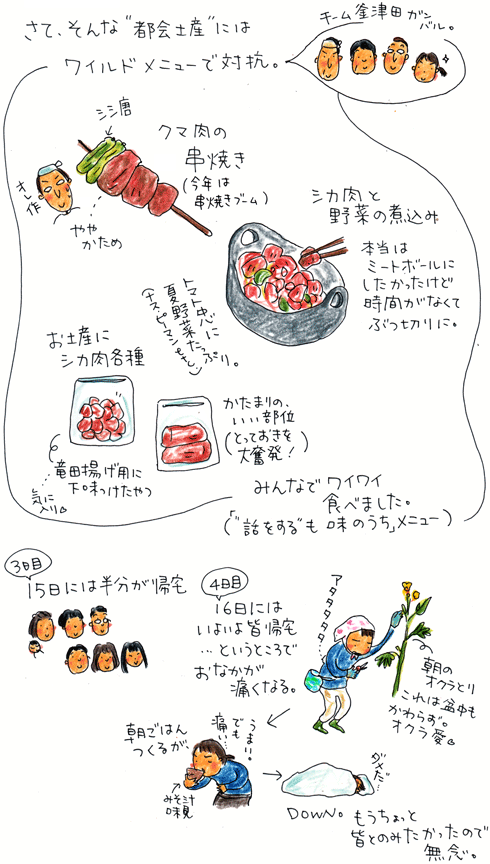 さて、そんな"都会土産"には
ワイルドメニューで対抗。
チーム釜津田ガン
バル。
シシ唐
クマ肉の
串焼き
(今年は
串焼きブーム)
オレ作
やや
かため
シカ肉と
野菜の煮込み
本当は
ミートボールに
したかったけど
時間がなくて
ぶつ切りに。
トマト中心に
夏野菜たっぷり。
(ナスピーマンもさ)
お土産に
シカ肉各種
かたまりの、
いい部位
(とっておきを
大奮発!)
竜田揚げ用に
下味つけたやつ
気に
入り
みんなでワイワイ
食べました。
(「"話をする"も味のうち」メニュー)
3日目
15日には半分が帰宅
4日目
16日には
いよいよ皆帰宅
…というところで
おなかが
痛くなる。
アタタタタタ
朝の
オクラとり
これは盆中も
かわらず。
オクラ愛
朝ごはん
つくるが
うまい。
でも
痛い…
みそ汁
味見
ダメだ…
DOWN。
もうちょっと
皆とのみたかったので
無念。